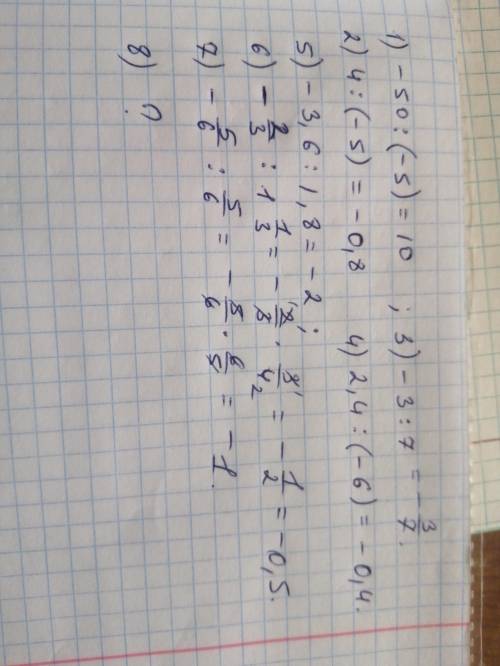 1) -50:(-5)=10 ; 3) -3:7 = -3/7.
2) 4:(-5) = -0,8 4) 2,4:(-6) = -0,4.
5) -3,6:1,8 = -2;
6) -2/3 : 1 1/3 = -2/3 · 3/4 = -1/2 = -0,5.
7) -5/6 : 5/6 = -5/6 · 6/5 = -1.
8) ?